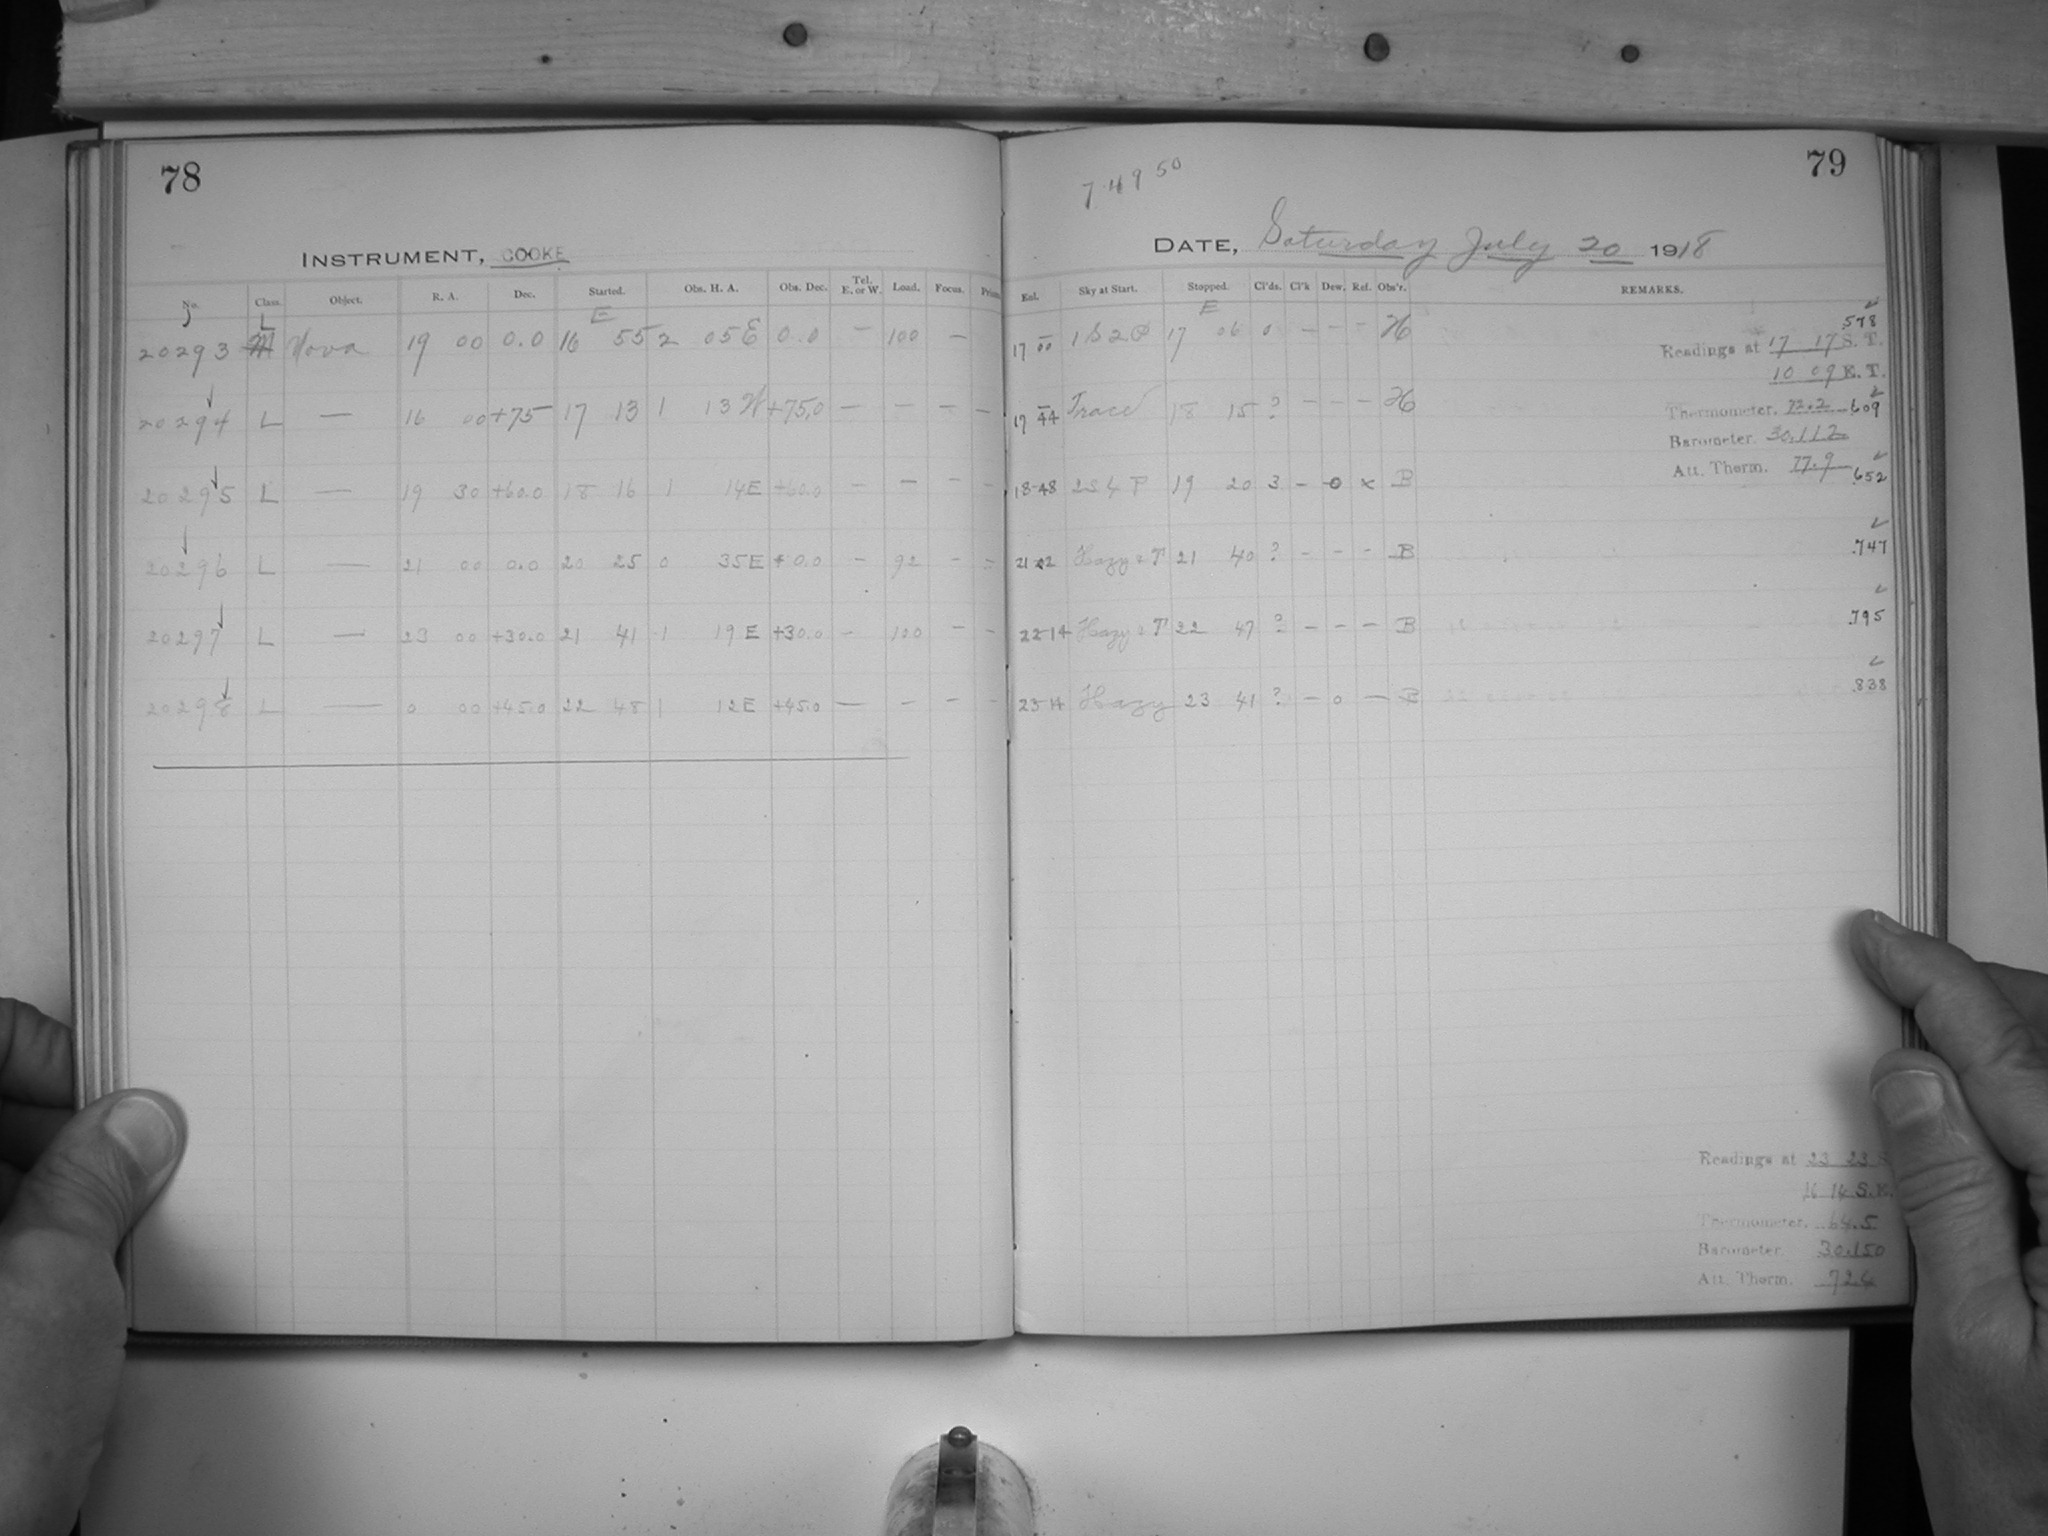 78
INSTRUMENT, COOKE
No. Class. Object. R. A. Dec. Started. Obs. H. A. Obs. Dec. Tel. E. or W. Load. Focus. Prism
E
L
20293 M Nova 19 00 0.0 16 55 2 05E 0.0 – 100 –
20294 L — 16 00 +75 17 13 1 13W +75.0 – – – –
20295 L — 19 30 +60.0 18 16 1 14E +60.0 – – – –
20296 L — 21 00 0.0 20 25 0 35E +0.0 – 92 – –
20297 L — 23 00 +30.0 21 41 1 19E +30.0 – 100 – –
20298 L — 0 00 +45.0 22 48 1 12E +45.0 — – – –
79
7 49 50
DATE, Saturday July 20 1918
Exl. Sky at Start. Stopped. Cl'ds. Cl'k Dew. Ref. Obs'r. REMARKS.
E
17 00 1S2P 17 06 0 – – – H .578
Readings at 17 17 S. T.
10 09 E. T.
17 44 Trace 18 15 ? – – – H
Thermometer. 72.2 .609
Barometer. 30.112
Att. Therm. 77.9
18-48 2S4P 19 20 3 – 0 x B .652
21 22 Hazy & T 21 40 ? – – – B .747
22-14 Hazy & T 22 47 ? – – – B .795
23-14 Hazy 23 41 ? – 0 — B .838
Readings at 23 23 S
16 14
Thermometer. 64.5
Barometer. 30.150
Att. Therm. 72.6